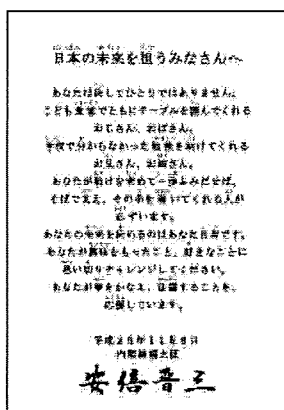 日本の未来を担うみなさんへ
あなたは決してひとりではありません。
こども食堂でともにテーブルを囲んでくれる
おじさん、おばさん。
学校で分からなかった勉強を助けてくれる
お兄さん、お姉さん。
あなたが助けを求めて一歩ふみだせば、
そばで支え、その手を導いてくれる人が
必ずいます。
あなたの未来を決めるのはあなた自身です。
あなたが興味をもったこと、好きなことに
思い切りチャレンジしてください。
あなたが夢をかなえ、活躍することを、
応援しています。
平成28年11月8日
内閣総理大臣
安倍晋三